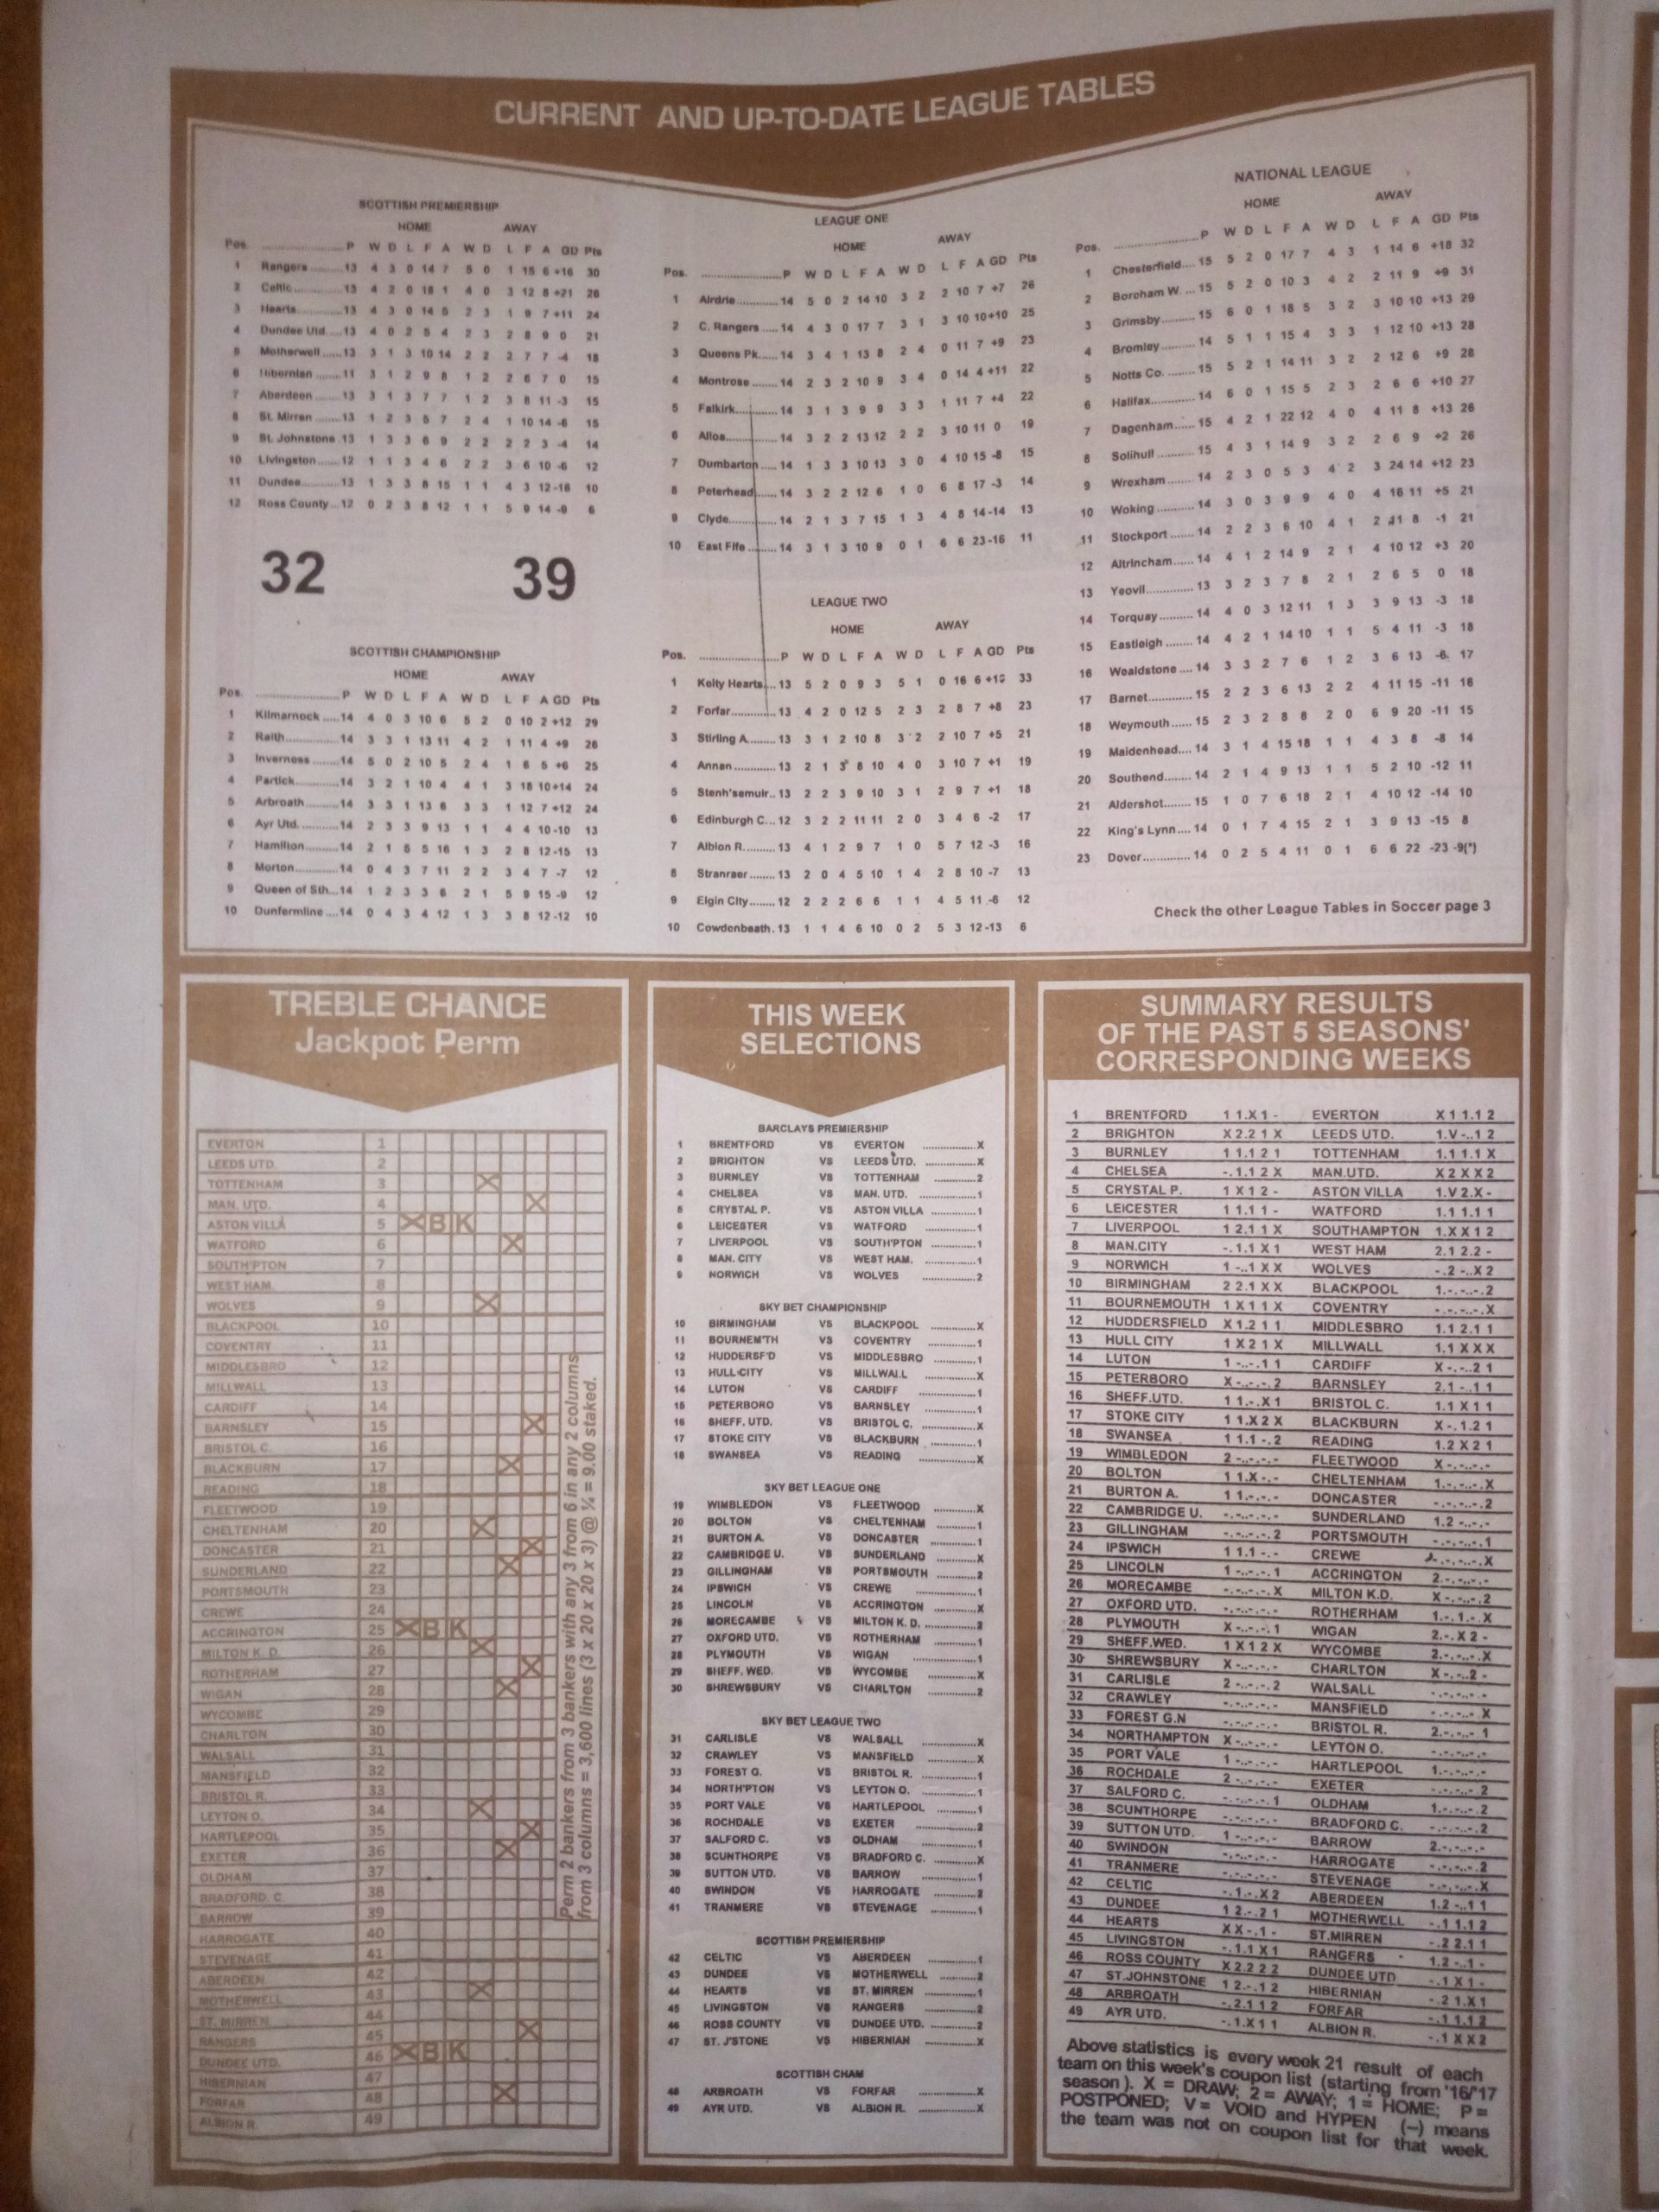 CURRENT AND UP-TO-DATE LEAGUE TABLES
SCOTTISH PREMIERSHIP
HOME AWAY
Pos. P W D L F A W D L F A GD Pts
1 Rangers 13 4 3 0 14 7 5 0 1 15 6 +16 30
2 Celtic 13 4 2 0 18 1 4 0 3 12 8 +21 26
3 Hearts 13 4 3 0 14 5 2 3 1 9 7 +11 24
4 Dundee Utd. 13 4 0 2 5 4 2 3 2 8 9 0 21
5 Motherwell 13 3 1 3 10 14 2 2 2 7 7 -4 18
6 Hibernian 11 3 1 2 9 8 1 2 2 6 7 0 15
7 Aberdeen 13 3 1 3 7 7 1 2 3 8 11 -3 15
8 St. Mirren 13 1 2 3 5 7 2 4 1 10 14 -6 15
9 St. Johnstone 13 1 3 3 6 9 2 2 2 2 3 -4 14
10 Livingston 12 1 1 3 4 6 2 2 3 6 10 -6 12
11 Dundee 13 1 3 3 8 15 1 1 4 3 12 -16 10
12 Ross County 12 0 2 3 8 12 1 1 5 9 14 -9 6
32 39
SCOTTISH CHAMPIONSHIP
HOME AWAY
Pos. P W D L F A W D L F A GD Pts
1 Kilmarnock 14 4 0 3 10 6 5 2 0 10 2 +12 29
2 Raith 14 3 3 1 13 11 4 2 1 11 4 +9 26
3 Inverness 14 5 0 2 10 5 2 4 1 6 5 +6 25
4 Partick 14 3 2 1 10 4 4 1 3 18 10 +14 24
5 Arbroath 14 3 3 1 13 6 3 3 1 12 7 +12 24
6 Ayr Utd. 14 2 3 3 9 13 1 1 4 4 10 -10 13
7 Hamilton 14 2 1 5 5 16 1 3 2 8 12 -15 13
8 Morton 14 0 4 3 7 11 2 2 3 4 7 -7 12
9 Queen of Sth. 14 1 2 3 3 6 2 1 5 9 15 -9 12
10 Dunfermline 14 0 4 3 4 12 1 3 3 8 12 -12 10
LEAGUE ONE
HOME AWAY
Pos. P W D L F A W D L F A GD Pts
1 Airdrie 14 5 0 2 14 10 3 2 2 10 7 +7 26
2 C. Rangers 14 4 3 0 17 7 3 1 3 10 10 +10 25
3 Queens Pk. 14 3 4 1 13 8 2 4 0 11 7 +9 23
4 Montrose 14 2 3 2 10 9 3 4 0 14 4 +11 22
5 Falkirk 14 3 1 3 9 9 3 3 1 11 7 +4 22
6 Alloa 14 3 2 2 13 12 2 2 3 10 11 0 19
7 Dumbarton 14 1 3 3 10 13 3 0 4 10 15 -8 15
8 Peterhead 14 3 2 2 12 6 1 0 6 8 17 -3 14
9 Clyde 14 2 1 3 7 15 1 3 4 8 14 -14 13
10 East Fife 14 3 1 3 10 9 0 1 6 6 23 -16 11
LEAGUE TWO
HOME AWAY
Pos. P W D L F A W D L F A GD Pts
1 Kelty Hearts 13 5 2 0 9 3 5 1 0 16 6 33
2 Forfar 13 4 2 0 12 5 2 3 2 8 7 +8 23
3 Stirling A. 13 3 1 2 10 8 3 2 2 10 7 +5 21
4 Annan 13 2 1 3 8 10 4 0 3 10 7 +1 19
5 Stenh'semuir 13 2 2 3 9 10 3 1 2 9 7 +1 18
6 Edinburgh C. 12 3 2 2 11 11 2 0 3 4 6 -2 17
7 Albion R. 13 4 1 2 9 7 1 0 5 7 12 -3 16
8 Stranraer 13 2 0 4 5 10 1 4 2 8 10 -7 13
9 Elgin City 12 2 2 2 6 6 1 1 4 5 11 -6 12
10 Cowdenbeath 13 1 1 4 6 10 0 2 5 3 12 -13 6
NATIONAL LEAGUE
HOME AWAY
Pos. P W D L F A W D L F A GD Pts
1 Chesterfield 15 5 2 0 17 7 4 3 1 14 6 +18 32
2 Boreham W. 15 5 2 0 10 3 4 2 2 11 9 +9 31
3 Grimsby 15 6 0 1 18 5 3 2 3 10 10 +13 29
4 Bromley 14 5 1 1 15 4 3 3 1 12 10 +13 28
5 Notts Co. 15 5 2 1 14 11 3 2 2 12 6 +9 28
6 Halifax 14 6 0 1 15 5 2 3 2 6 6 +10 27
7 Dagenham 15 4 2 1 22 12 4 0 4 11 8 +13 26
8 Solihull 15 4 3 1 14 9 3 2 2 6 9 +2 26
9 Wrexham 14 2 3 0 5 3 4 2 3 24 14 +12 23
10 Woking 14 3 0 3 9 9 4 0 4 16 11 +5 21
11 Stockport 14 2 2 3 6 10 4 1 2 11 8 -1 21
12 Altrincham 14 4 1 2 14 9 2 1 4 10 12 +3 20
13 Yeovil 13 3 2 3 7 8 2 1 2 6 5 0 18
14 Torquay 14 4 0 3 12 11 1 3 3 9 13 -3 18
15 Eastleigh 14 4 2 1 14 10 1 1 5 4 11 -3 18
16 Wealdstone 14 3 3 2 7 6 1 2 3 6 13 -6 17
17 Barnet 15 2 2 3 6 13 2 2 4 11 15 -11 16
18 Weymouth 15 2 3 2 8 8 2 0 6 9 20 -11 15
19 Maidenhead 14 3 1 4 15 18 1 1 4 3 8 -8 14
20 Southend 14 2 1 4 9 13 1 1 5 2 10 -12 11
21 Aldershot 15 1 0 7 6 18 2 1 4 10 12 -14 10
22 King's Lynn 14 0 1 7 4 15 2 1 3 9 13 -15 8
23 Dover 14 0 2 5 4 11 0 1 6 6 22 -23 -9(*)
Check the other League Tables in Soccer page 3
TREBLE CHANCE
Jackpot Perm
EVERTON 1
LEEDS UTD. 2
TOTTENHAM 3 X
MAN. UTD. 4 X
ASTON VILLA 5 X B K
WATFORD 6 X
SOUTH'PTON 7
WEST HAM 8
WOLVES 9 X
BLACKPOOL 10
COVENTRY 11
MIDDLESBRO 12
MILLWALL 13
CARDIFF 14
BARNSLEY 15 X
BRISTOL C. 16
BLACKBURN 17 X
READING 18
FLEETWOOD 19
CHELTENHAM 20 X
DONCASTER 21 X
SUNDERLAND 22 X
PORTSMOUTH 23
CREWE 24
ACCRINGTON 25 X B K
MILTON K. D. 26 X
ROTHERHAM 27 X
WIGAN 28 X
WYCOMBE 29
CHARLTON 30
WALSALL 31
MANSFIELD 32
BRISTOL R. 33
LEYTON O. 34 X
HARTLEPOOL 35 X
EXETER 36 X
OLDHAM 37
BRADFORD. C. 38
BARROW 39
HARROGATE 40
STEVENAGE 41
ABERDEEN 42
MOTHERWELL 43 X
ST. MIRREN 44
RANGERS 45 X
DUNDEE UTD. 46 X B K
HIBERNIAN 47
FORFAR 48 X
ALBION R. 49
Perm 2 bankers from 3 bankers with any 3 from 6 in any 2 columns
from 3 columns = 3,600 lines (3 x 20 x 20 x 3) @ ¼ = 9.00 staked.
THIS WEEK
SELECTIONS
BARCLAYS PREMIERSHIP
1 BRENTFORD VS EVERTON X
2 BRIGHTON VS LEEDS UTD. X
3 BURNLEY VS TOTTENHAM 2
4 CHELSEA VS MAN. UTD. 1
5 CRYSTAL P. VS ASTON VILLA 1
6 LEICESTER VS WATFORD 1
7 LIVERPOOL VS SOUTH'PTON 1
8 MAN. CITY VS WEST HAM. 1
9 NORWICH VS WOLVES 2
SKY BET CHAMPIONSHIP
10 BIRMINGHAM VS BLACKPOOL X
11 BOURNEM'TH VS COVENTRY 1
12 HUDDERSF'D VS MIDDLESBRO 1
13 HULL-CITY VS MILLWALL X
14 LUTON VS CARDIFF 1
15 PETERBORO VS BARNSLEY 1
16 SHEFF. UTD. VS BRISTOL C. X
17 STOKE CITY VS BLACKBURN 1
18 SWANSEA VS READING X
SKY BET LEAGUE ONE
19 WIMBLEDON VS FLEETWOOD X
20 BOLTON VS CHELTENHAM 1
21 BURTON A. VS DONCASTER 1
22 CAMBRIDGE U. VS SUNDERLAND X
23 GILLINGHAM VS PORTSMOUTH 2
24 IPSWICH VS CREWE 1
25 LINCOLN VS ACCRINGTON X
26 MORECAMBE VS MILTON K. D. 2
27 OXFORD UTD. VS ROTHERHAM 1
28 PLYMOUTH VS WIGAN 1
29 SHEFF. WED. VS WYCOMBE X
30 SHREWSBURY VS CHARLTON 2
SKY BET LEAGUE TWO
31 CARLISLE VS WALSALL X
32 CRAWLEY VS MANSFIELD X
33 FOREST G. VS BRISTOL R. 1
34 NORTH'PTON VS LEYTON O. 1
35 PORT VALE VS HARTLEPOOL 1
36 ROCHDALE VS EXETER 2
37 SALFORD C. VS OLDHAM 1
38 SCUNTHORPE VS BRADFORD C. X
39 SUTTON UTD. VS BARROW 1
40 SWINDON VS HARROGATE 2
41 TRANMERE VS STEVENAGE 1
SCOTTISH PREMIERSHIP
42 CELTIC VS ABERDEEN 1
43 DUNDEE VS MOTHERWELL 2
44 HEARTS VS ST. MIRREN 1
45 LIVINGSTON VS RANGERS 2
46 ROSS COUNTY VS DUNDEE UTD. 2
47 ST. J'STONE VS HIBERNIAN X
SCOTTISH CHAM
48 ARBROATH VS FORFAR X
49 AYR UTD. VS ALBION R. X
SUMMARY RESULTS
OF THE PAST 5 SEASONS'
CORRESPONDING WEEKS
1 BRENTFORD 1 1.X 1 - EVERTON X 1 1.1 2
2 BRIGHTON X 2.2 1 X LEEDS UTD. 1.V -..1 2
3 BURNLEY 1 1.1 2 1 TOTTENHAM 1.1 1.1 X
4 CHELSEA -.1.1 2 X MAN.UTD. X 2 X X 2
5 CRYSTAL P. 1 X 1 2 - ASTON VILLA 1.V 2.X -
6 LEICESTER 1 1.1 1 - WATFORD 1.1 1.1 1
7 LIVERPOOL 1 2.1 1 X SOUTHAMPTON 1.X X 1 2
8 MAN.CITY -.1.1 X 1 WEST HAM 2.1 2.2 -
9 NORWICH 1 -..1 X X WOLVES -.2 -..X 2
10 BIRMINGHAM 2 2.1 X X BLACKPOOL 1.-.-.-.2
11 BOURNEMOUTH 1 X 1 1 X COVENTRY -.-.-.-.X
12 HUDDERSFIELD X 1.2 1 1 MIDDLESBRO 1.1 2.1 1
13 HULL CITY 1 X 2 1 X MILLWALL 1.1 X X X
14 LUTON 1 -..-.1 1 CARDIFF X -.-..2 1
15 PETERBORO X -..-.-.2 BARNSLEY 2.1 -..1 1
16 SHEFF.UTD. 1 1.-.X 1 BRISTOL C. 1.1 X 1 1
17 STOKE CITY 1 1.X 2 X BLACKBURN X -.1.2 1
18 SWANSEA 1 1.1 -.2 READING 1.2 X 2 1
19 WIMBLEDON 2 -..-.-.- FLEETWOOD X -.-.-.-
20 BOLTON 1 1.X -.- CHELTENHAM 1.-.-..-.X
21 BURTON A. 1 1.-.-.- DONCASTER -.-.-..-.2
22 CAMBRIDGE U. -.-..-.-.- SUNDERLAND 1.2 -..-.-
23 GILLINGHAM -.-..-.-.2 PORTSMOUTH -.-.-..-.1
24 IPSWICH 1 1.1 -.- CREWE -.-.-.X
25 LINCOLN 1 -..-.-.1 ACCRINGTON 2.-.-..-.-
26 MORECAMBE -.-..-.-.X MILTON K.D. X -.-..-.2
27 OXFORD UTD. -.-..-.-.- ROTHERHAM 1.-.1.-.X
28 PLYMOUTH X -..-.-.1 WIGAN 2.-.X 2 -
29 SHEFF.WED. 1 X 1 2 X WYCOMBE 2.-.-..-.X
30 SHREWSBURY X -..-.-.- CHARLTON X -.-..2 -
31 CARLISLE 2 -..-.-.2 WALSALL -.-.-..-.-
32 CRAWLEY -.-..-.-.- MANSFIELD -.-.-..-.X
33 FOREST G.N -.-..-.-.- BRISTOL R. 2.-.-..-.1
34 NORTHAMPTON X -..-.-.- LEYTON O. -.-.-..-.-
35 PORT VALE 1 -..-.-.- HARTLEPOOL 1.-.-..-.-
36 ROCHDALE 2 -..-.-.- EXETER -.-.-..-.2
37 SALFORD C. -.-..-.-.1 OLDHAM 1.-.-..-.2
38 SCUNTHORPE -.-..-.-.- BRADFORD C. -.-.-..-.2
39 SUTTON UTD. 1 -..-.-.- BARROW 2.-.-..-.-
40 SWINDON -.-..-.-.- HARROGATE -.-.-..-.2
41 TRANMERE -.-..-.-.- STEVENAGE -.-.-..-.X
42 CELTIC -.1.-.X 2 ABERDEEN 1.2 -..1 1
43 DUNDEE 1 2.-.2 1 MOTHERWELL -.1 1.1 2
44 HEARTS X X -.1 - ST.MIRREN -.2 2.1 1
45 LIVINGSTON -.1.1 X 1 RANGERS 1.2 -..1 -
46 ROSS COUNTY X 2.2 2 2 DUNDEE UTD -.1 X 1 -
47 ST.JOHNSTONE 1 2.-.1 2 HIBERNIAN -.2 1.X 1
48 ARBROATH -.2.1 1 2 FORFAR -.1 1.1 2
49 AYR UTD. -.1.X 1 1 ALBION R. -.1 X X 2
Above statistics is every week 21 result of each
team on this week's coupon list (starting from '16/'17
season ). X = DRAW; 2 = AWAY; 1 = HOME; P =
POSTPONED; V = VOID and HYPEN (–) means
the team was not on coupon list for that week.